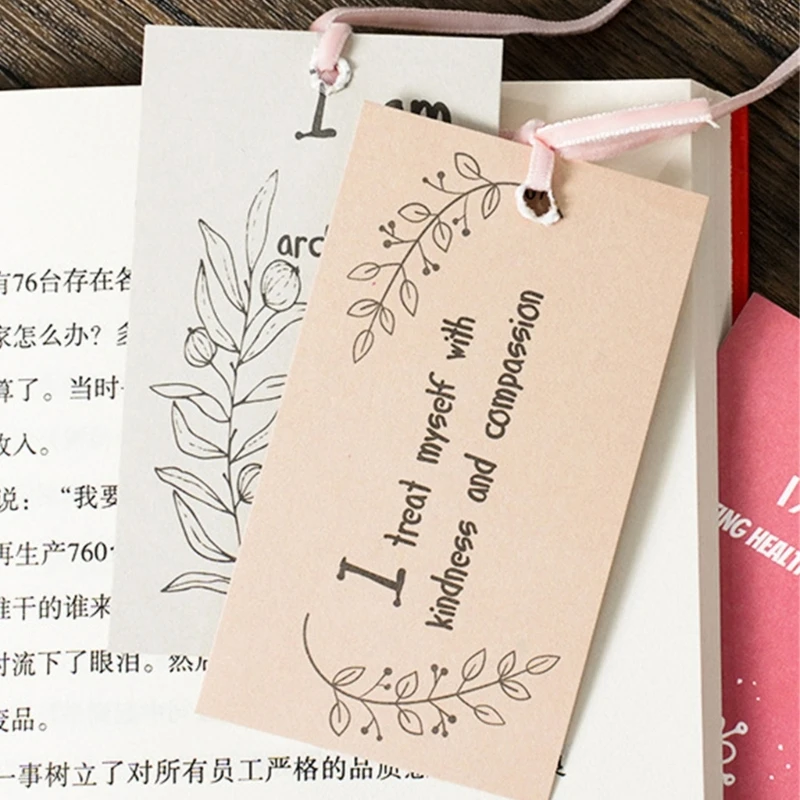 I am
arc
I treat myself with
kindness and compassion
有76台存在各
家怎么办？多
算了。当时
收入。
说：“我要
再生产760
谁干的谁来
时流下了眼泪。然后
废品。
一事树立了对所有员工严格的品质意
ING HEALT